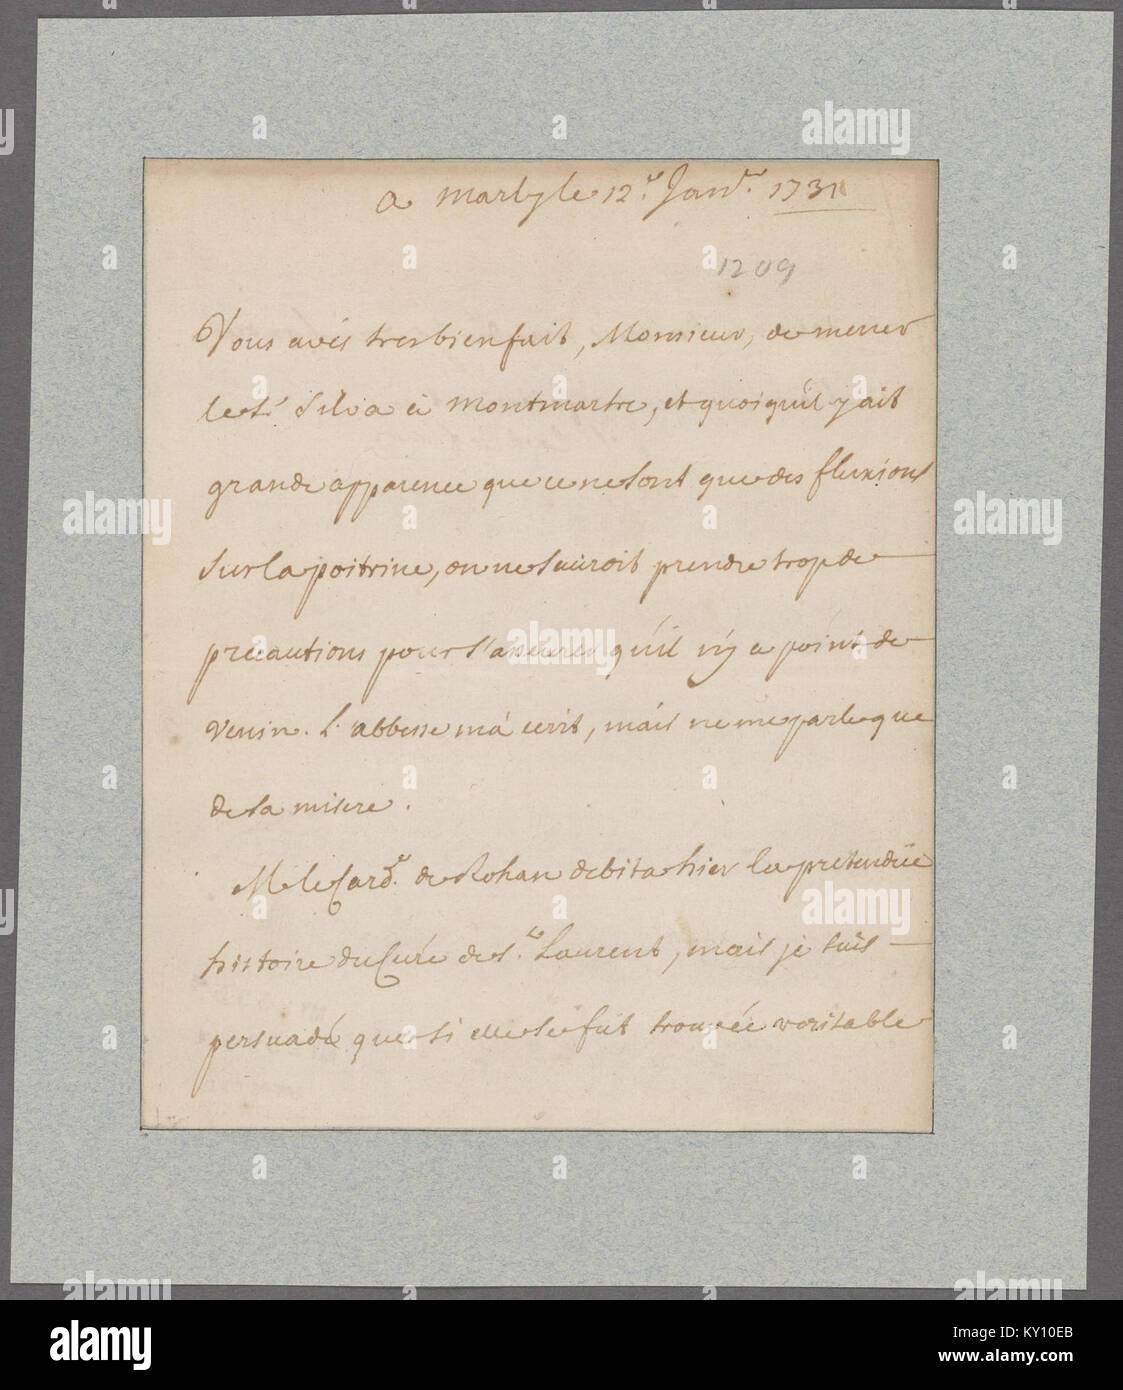 a Marly le 12.e Janv.er 1731
1209
Vous avés tres bien fait, Monsieur, de mener
le Sr Silva à Montmartre, et quoiqu'il y ait
grande apparence que ce ne sont que des fluxions
sur la poitrine, on ne sauroit prendre trop de
precautions pour s'assurer qu'il n'y a point de
venin. L'abbesse m'a ecrit, mais ne me parle que
de sa misere.
M. le Card.l de Rohan debita hier la pretendüe
histoire du Curé de St. Laurent, mais je suis
persuadé que si elle se fut trouvée veritable
alamy
Image ID: KY10EB
www.alamy.com